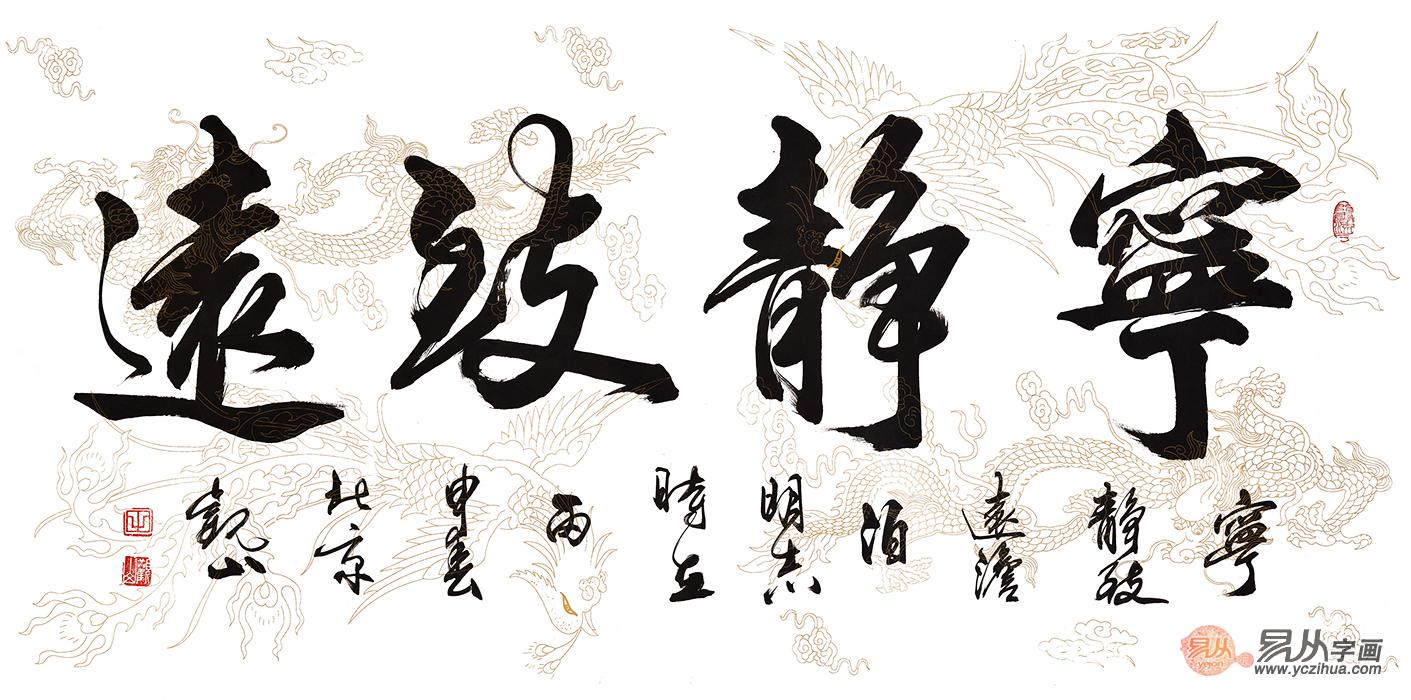 寧静致遠
寧
静致
遠澹
泊
明志
時在
丙
申春
北京
觀山
易从
易从字画
www.yczihua.com